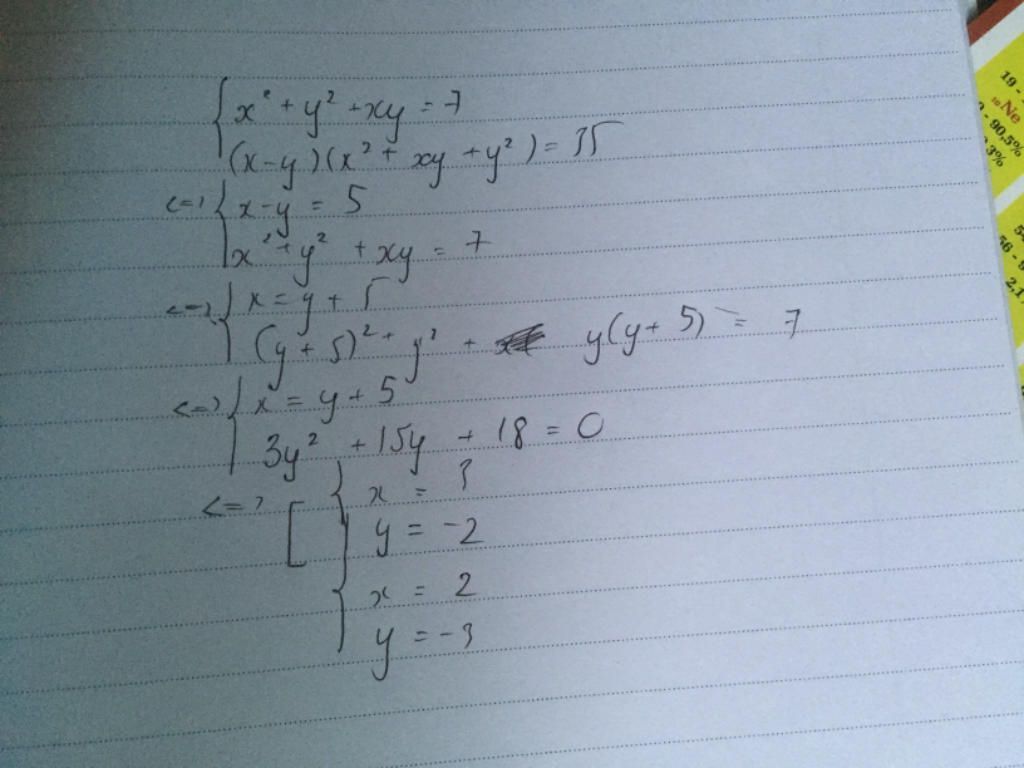 x² + y² + xy = 7
(x-y)(x² + xy + y²) = 35
<=> x-y = 5
x² + y² + xy = 7
<=> x = y + 5
(y + 5)² + y² + y(y + 5) = 7
<=> x = y + 5
3y² + 15y + 18 = 0
<=> x = 3
y = -2
x = 2
y = -3
19 -
10Ne
- 90,5%
3%
56 - 9
2,1